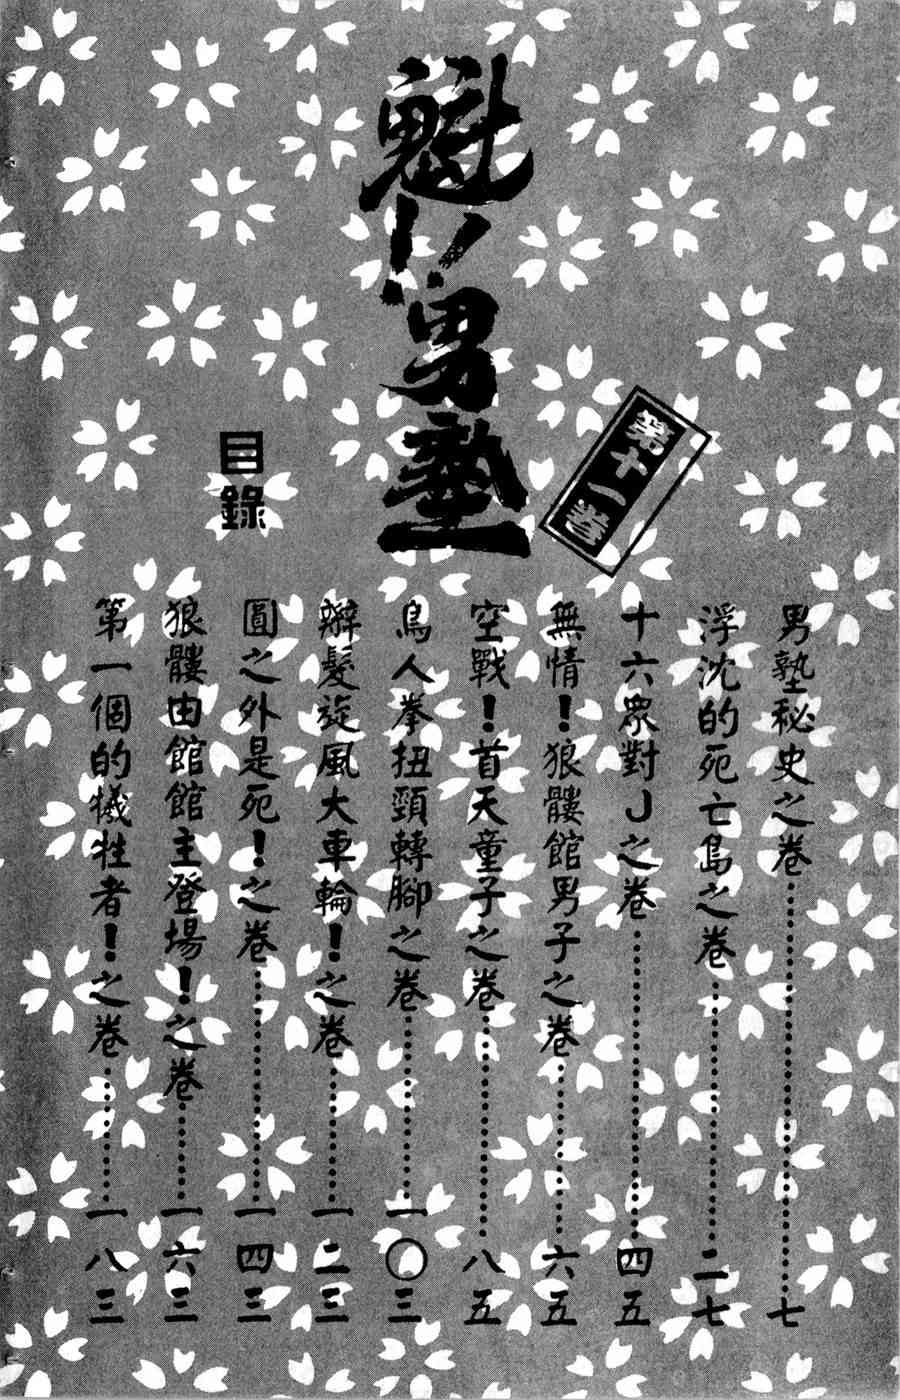 魁!!男塾
第十一卷
目錄
男塾秘史之卷………七
浮沈的死亡島之卷………二七
十六眾對J之卷………四五
無情!狼髏館男子之卷………六五
空戰!首天童子之卷………八五
鳥人拳扭頸轉腳之卷………一〇三
辮髮旋風大車輪!之卷………一二三
圓之外是死!之卷………一四三
狼髏由館館主登場!之卷………一六三
第一個的犧牲者!之卷………一八三